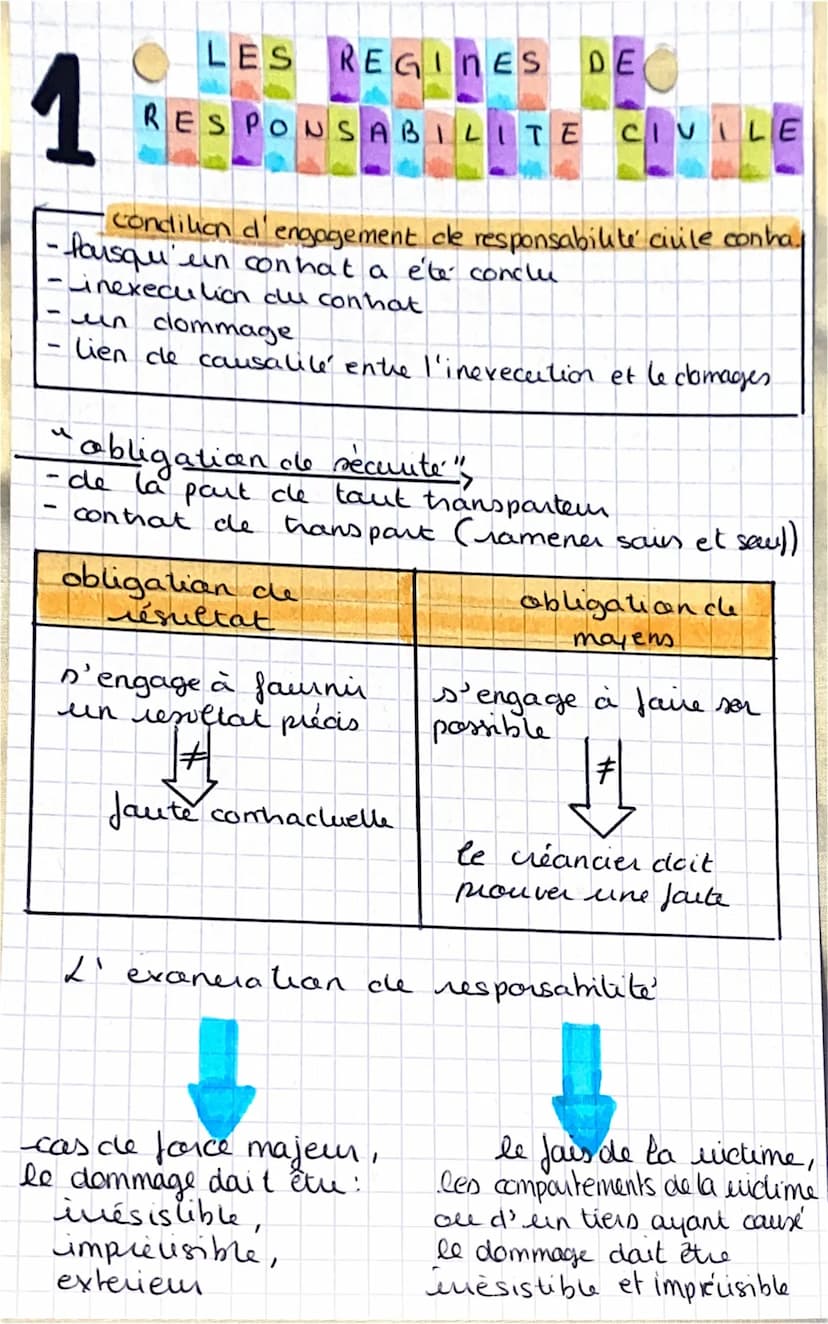 1
LES REGIMES DE
RESPONSABILITE CIVILE
condition d'engagement de responsabilité civile contra.
- lorsqu'un contrat a été conclu
- inexecution du contrat
- un dommage
- lien de causalité entre l'inexecution et le domages
"obligation de sécurité"
- de la part de tout transporteur
- contrat de transport (ramener sain et sauf)
obligation de
résultat
s'engage à fournir
un resultat précis
≠
faute contractuelle
obligation de
moyens
s'engage à faire son
possible
≠
le créancier doit
prouver une faute
L'exoneration de responsabilité
cas de force majeur,
le dommage doit être :
irrésistible,
imprévisible,
exterieur
le fais de la victime,
les comportements de la victime
ou d'un tiers ayant causé
le dommage doit être
irrésistible et imprévisible